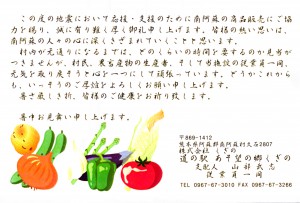 この度の地震において応援・支援のために南阿蘇の商品販売にご協力を賜り、誠に有り難く厚く御礼申し上げます。皆様の熱い思いは、南阿蘇の人々の心に深くきざまれていくことと思います。
村内が元通りになるまでは、どのくらいの時間を要するのか見当がつきませんが、村民、農畜産物の生産者、そして当施設の従業員一同、元気を取り戻そうと心を一つにして頑張っています。どうかこれからも、いっそうのご厚情をよろしくお願い申し上げます。
暑さ厳しき折、皆様のご健康をお祈り致します。
暑中お見舞い申し上げます
〒869-1412
熊本県阿蘇郡南阿蘇村久石2807
株式会社 くぎの
道の駅 あそ望の郷くぎの
支配人 山部武志
従業員一同
TEL 0967-67-3010 FAX 0967-67-3266